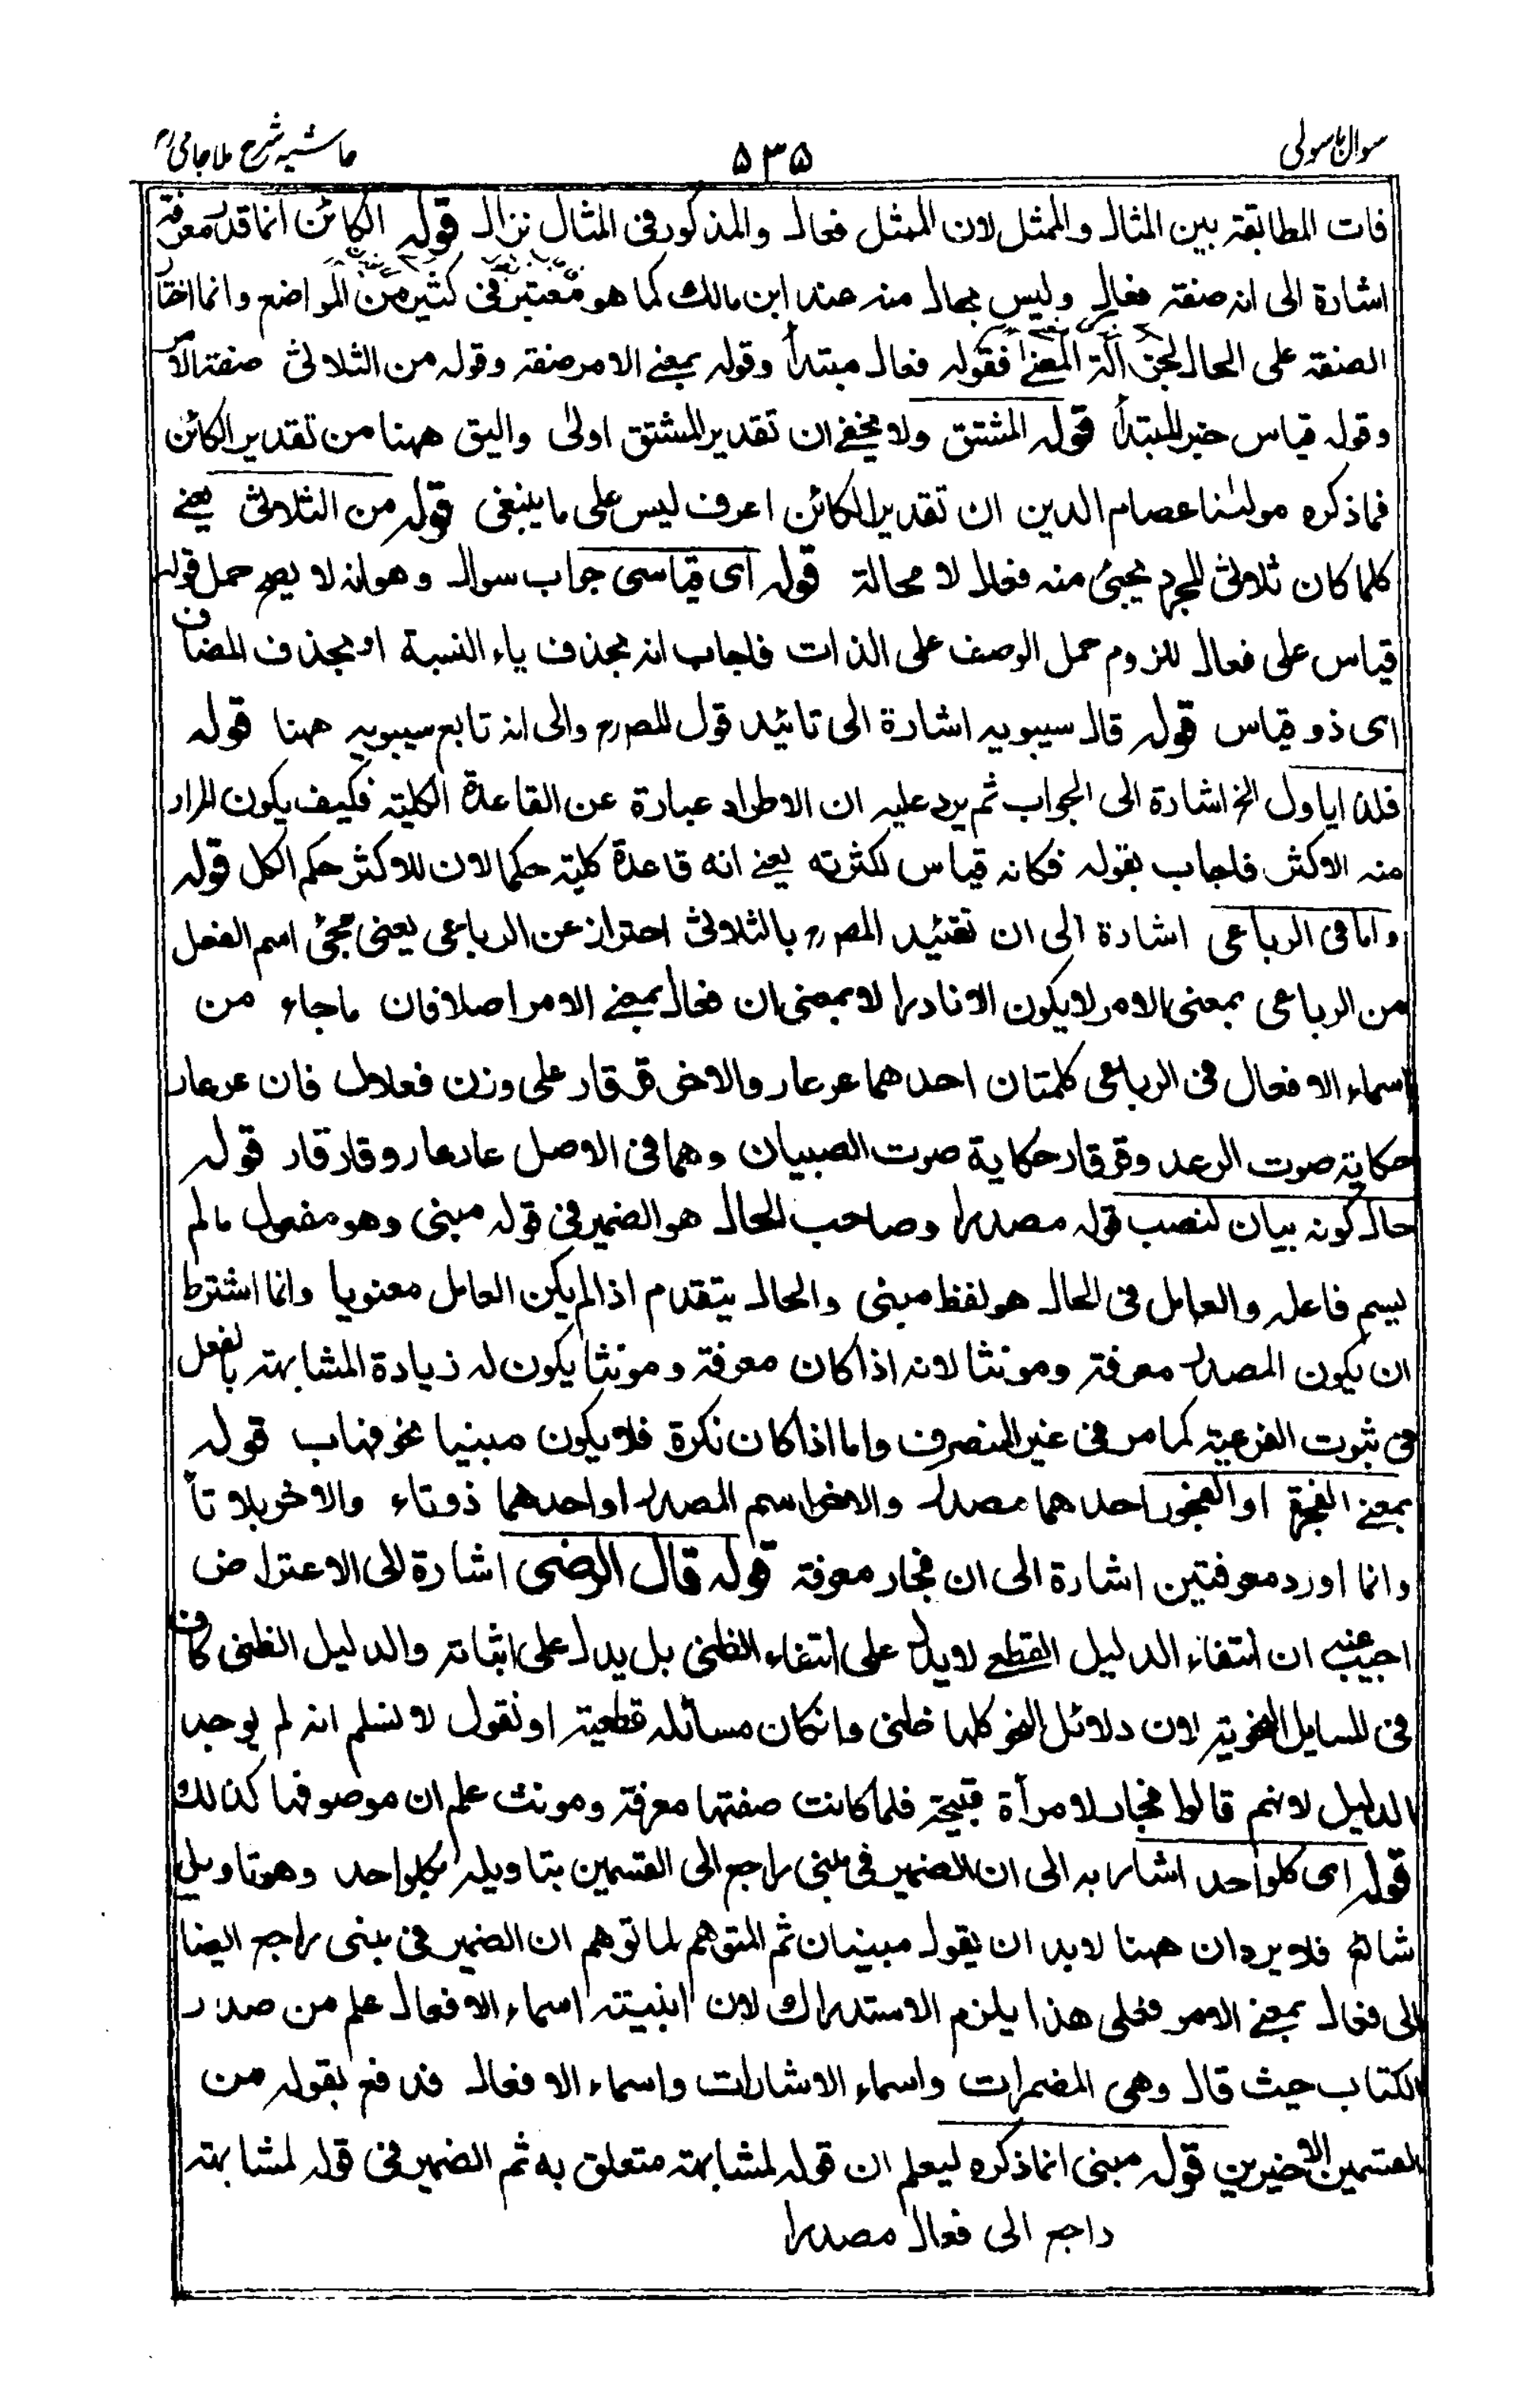 سوال باسولی ۵۳۵ حاشیہ شرح ملا جامی رح
فات المطابقة بين المثال والممثل لان الممثل فعال والمذكور فى المثال نزال قوله الكائن انما قدر معرفة
اشارة الى انه صفة فعال وليس بحال منه عند ابن مالك كما هو معتبر فى كثير من المواضع وانما اختار
الصفة على الحال المعنى فقوله فعال مبتدأ وقوله بمعنے الامر صفة وقوله من الثلاثى صفة الامر
وقوله قياس خبر للمبتدأ قوله المشتق ولا يخفے ان تقدير المشتق اولى واليق ههنا من تقدير الكائن
فما ذكره مولٰنا عصام الدين ان تقدير الكائن اعرف ليس على ما ينبغى قوله من الثلاثى يعنے
كلما كان ثلاثى المجرد يجيئ منه فعال لا محالة قوله اى قياسى جواب سوال وهو انه لا يصح حمل قوله
قياس على فعال للزوم حمل الوصف على الذات فاجاب انه بحذف ياء النسبة او بحذف المضاف
اى ذو قياس قوله قال سيبويه اشارة الى تائيد قول المص رح والى انه تابع سيبويه ههنا قوله
فلذا اياول الخ اشارة الى الجواب ثم يرد عليه ان الاطراد عبارة عن القاعدة الكلية فكيف يكون المراد
منه الاكثر فاجاب بقوله فكانه قياس لكثرته يعنے انه قاعدة كلية حكما لان للاكثر حكم الكل قوله
واما فى الرباعى اشارة الى ان تقئيد المص رح بالثلاثى احتراز عن الرباعى يعنى مجئ اسم الفعل
من الرباعى بمعنى الامر لا يكون الا نادرا لا بمعنى ان فعال بمعنے الامر اصلا فان ما جاء من
اسماء الافعال فى الرباعى كلمتان احدهما عرعار والاخى قرقار على وزن فعلال فان عرعار
حكاية صوت الرعد وقرقار حكاية صوت الصبيان وهما فى الاصل عارعار وقارقار قوله
حال كونه بيان لنصب قوله مصدرا وصاحب الحال هو الضمير فى قوله مبنى وهو مفعول مالم
يسم فاعله والعامل فى الحال هو لفظ مبنى والحال يتقدم اذا لم يكن العامل معنويا وانما اشترط
ان يكون المصدر معرفة ومونثا لانه اذا كان معرفة ومونثا يكون له زيادة المشابهة بالفعل
فى ثبوت الفرعية كما مر فى غير المنصرف واما اذا كان نكرة فلا يكون مبنيا نحو فهاب قوله
بمعنے الفجرة او الفجور احدهما مصدر والاخر اسم المصدر او احدهما ذوتاء والاخر بلا تاء
وانما اورد معرفتين اشارة الى ان فجار معرفة قوله قال الرضى اشارة الى الاعتراض
اجيب عنه ان انتفاء الدليل القطعے لا يدل على انتفاء الظنى بل يدل على اثباته والدليل الظنى كاف
فى المسايل النحوية لان دلائل النحو كلها ظنى وانكان مسائله قطعية او نقول لا نسلم انه لم يوجد
الدليل لانهم قالوا فجار لامرأة قبيحة فلما كانت صفتها معرفة ومونث علم ان موصوفها كذالك
قوله اى كلواحد اشار به الى ان الضمير فى مبنى راجع الى القسمين بتاويله بكلواحد وهو تاويل
شائع فلا يرد ان ههنا لابد ان يقول مبنيان ثم المتوهم لما توهم ان الضمير فى مبنى راجع ايضا
الى فعال بمعنے الامر فعلى هذا يلزم الاستدراك لان ابنيته اسماء الافعال علم من صدر
الكتاب حيث قال وهى المضمرات واسماء الاشارات واسماء الافعال فدفع بقوله من
القسمين الاخيرين قوله مبنى انما ذكره ليعلم ان قوله لمشابهته متعلق به ثم الضمير فى قوله لمشابهته
راجع الى فعال مصدرا